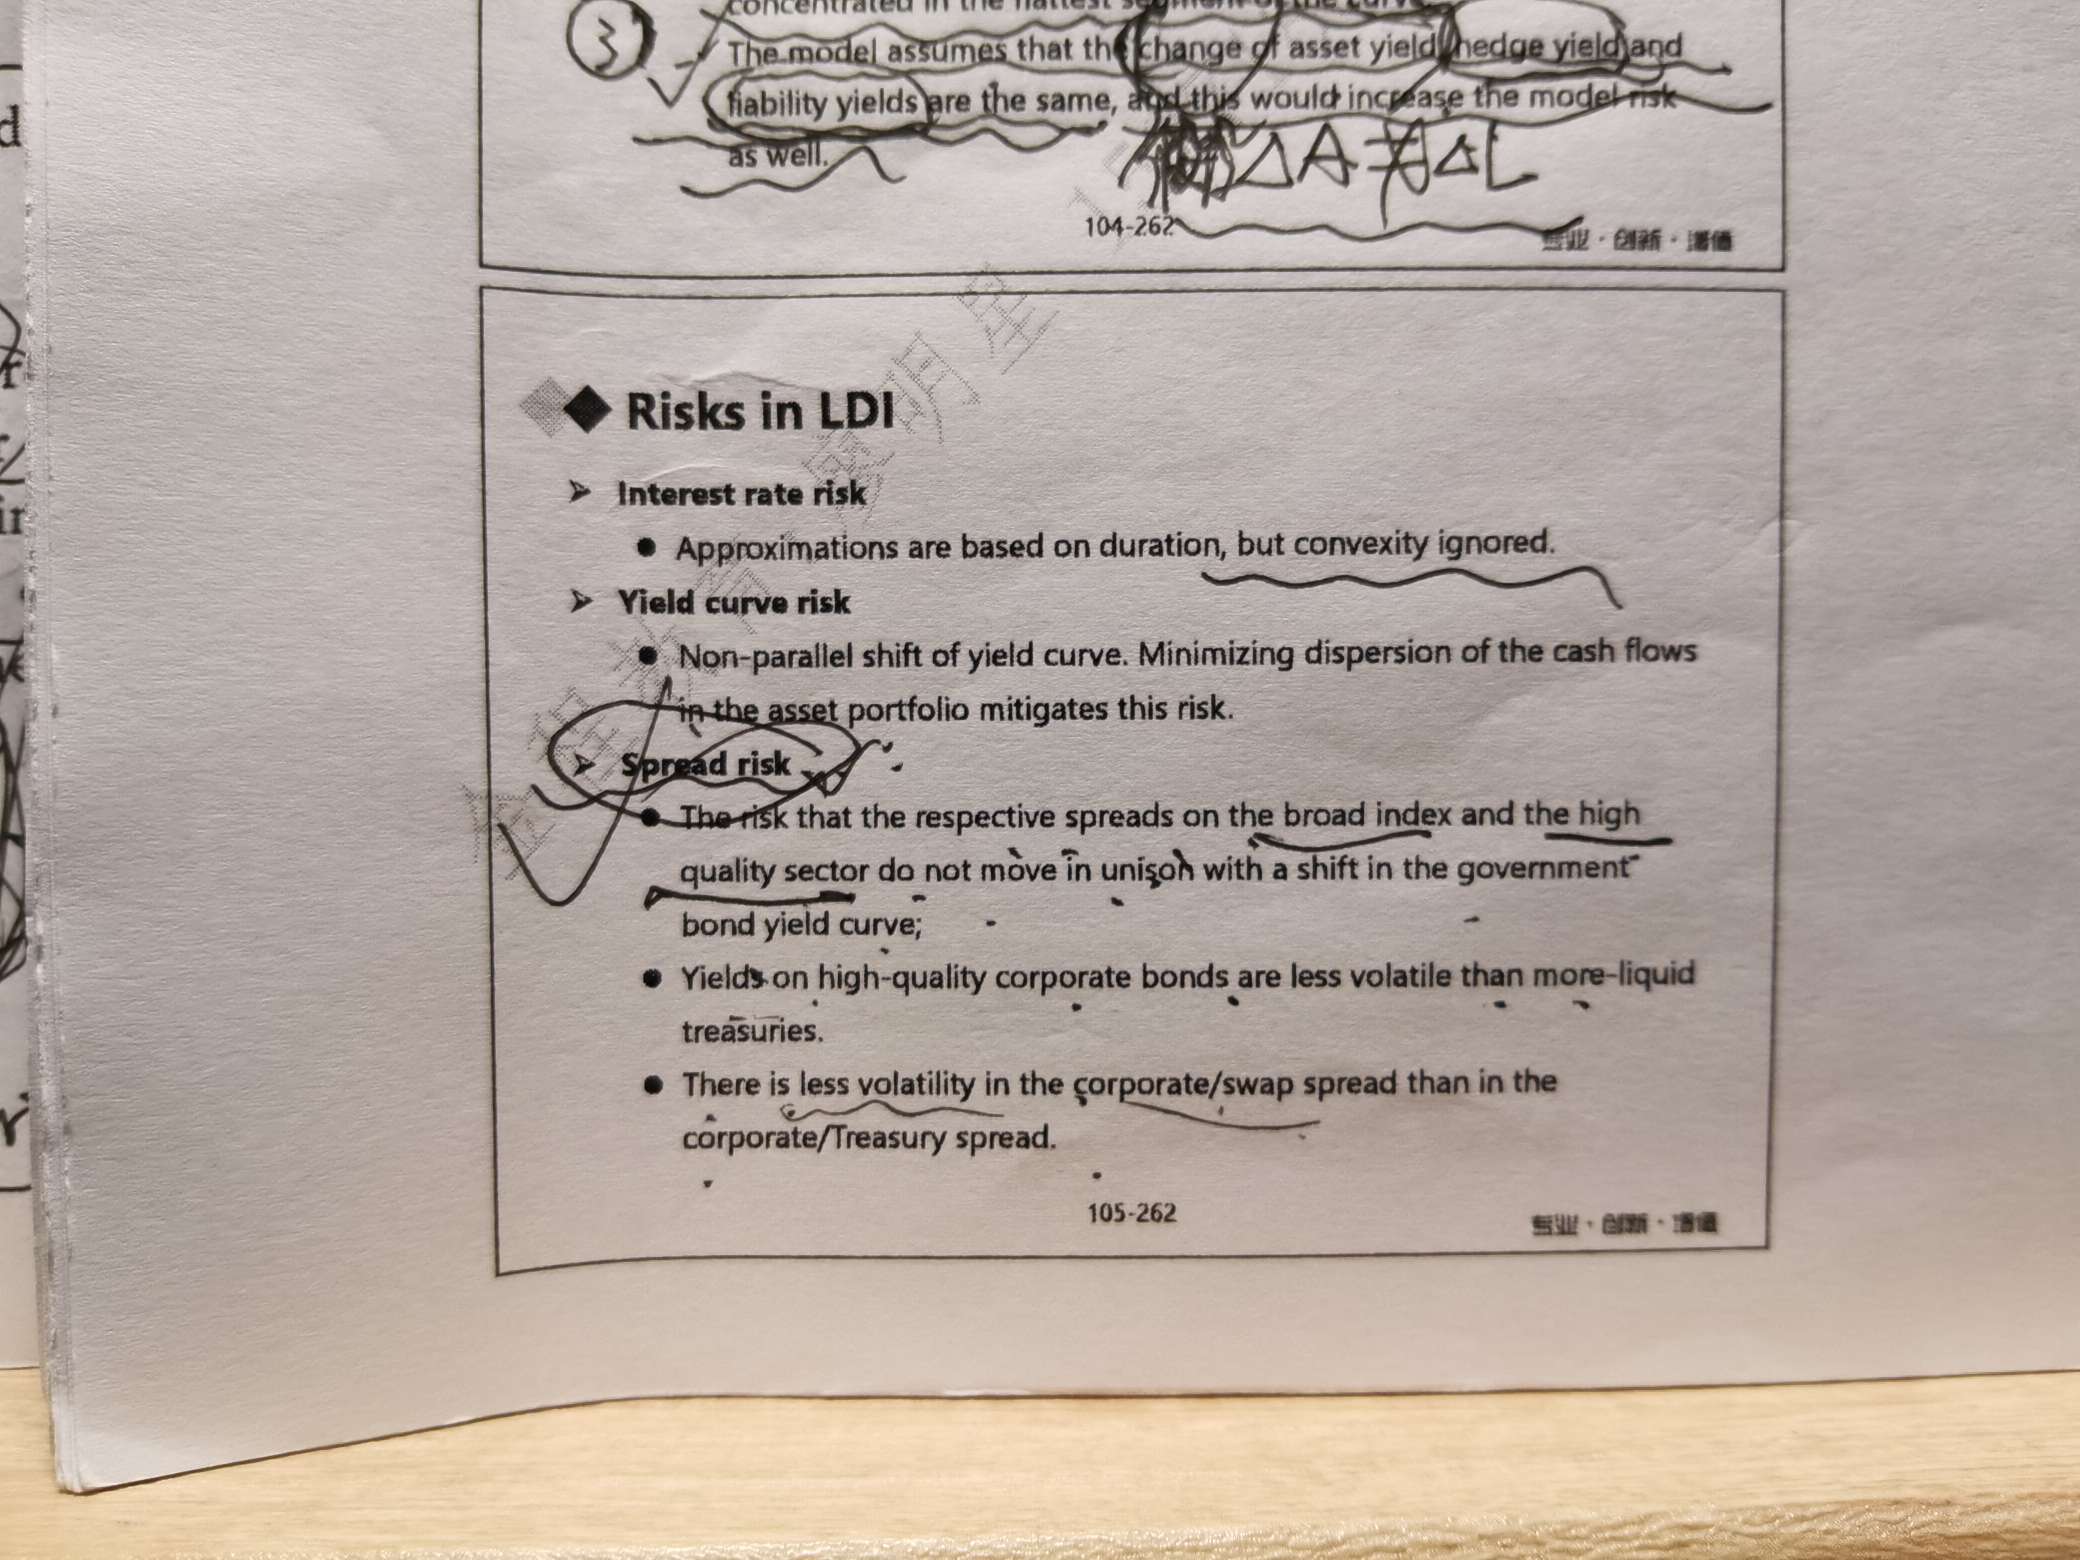 ③
The model assumes that the change of asset yield, hedge yield and
liability yields are the same, and this would increase the model risk
as well.
ΔA ≠ ΔL
104-262
专业 · 创新 · 增值
Risks in LDI
➢ Interest rate risk
● Approximations are based on duration, but convexity ignored.
➢ Yield curve risk
● Non-parallel shift of yield curve. Minimizing dispersion of the cash flows
in the asset portfolio mitigates this risk.
➢ Spread risk
● The risk that the respective spreads on the broad index and the high
quality sector do not move in unison with a shift in the government
bond yield curve;
● Yields on high-quality corporate bonds are less volatile than more-liquid
treasuries.
● There is less volatility in the corporate/swap spread than in the
corporate/Treasury spread.
105-262
专业 · 创新 · 增值